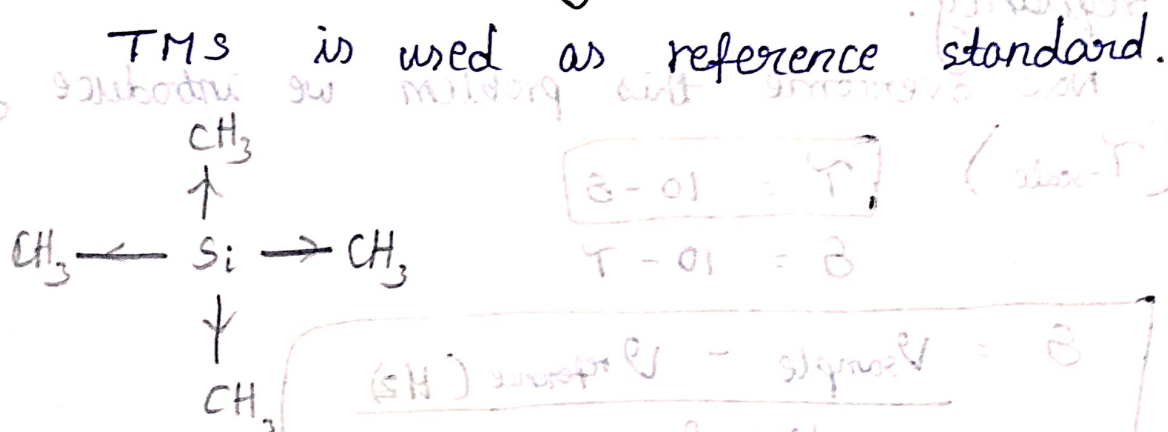 TMS is used as reference standard.
CH₃
CH₃ ← Si → CH₃
CH₃